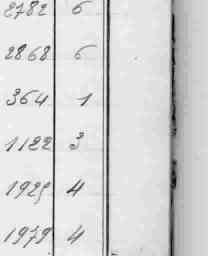 2782 6
2868 6
364 1
1122 3
1929 4
1979 4